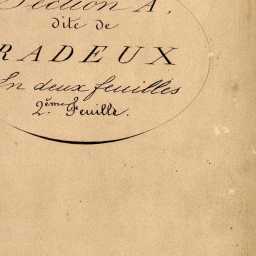 Section A.
dite de
RADEUX
En deux feuilles
2ème Feuille.